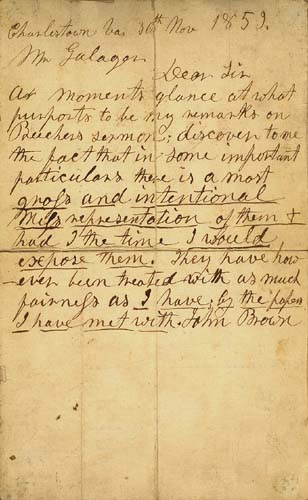 Charlestown Va, 30th Nov 1859.
Mr Galagar
Dear Sir
As moments glance at what
purports to be my remarks on
Beechers sermon; discover to me
the fact that in some important
particulars there is a most
gross and intentional
Missrepresentation of them &
had I the time I would
expose them. They have how
ever been treated with as much
fairness as I have, by the papers
I have met with. John Brown